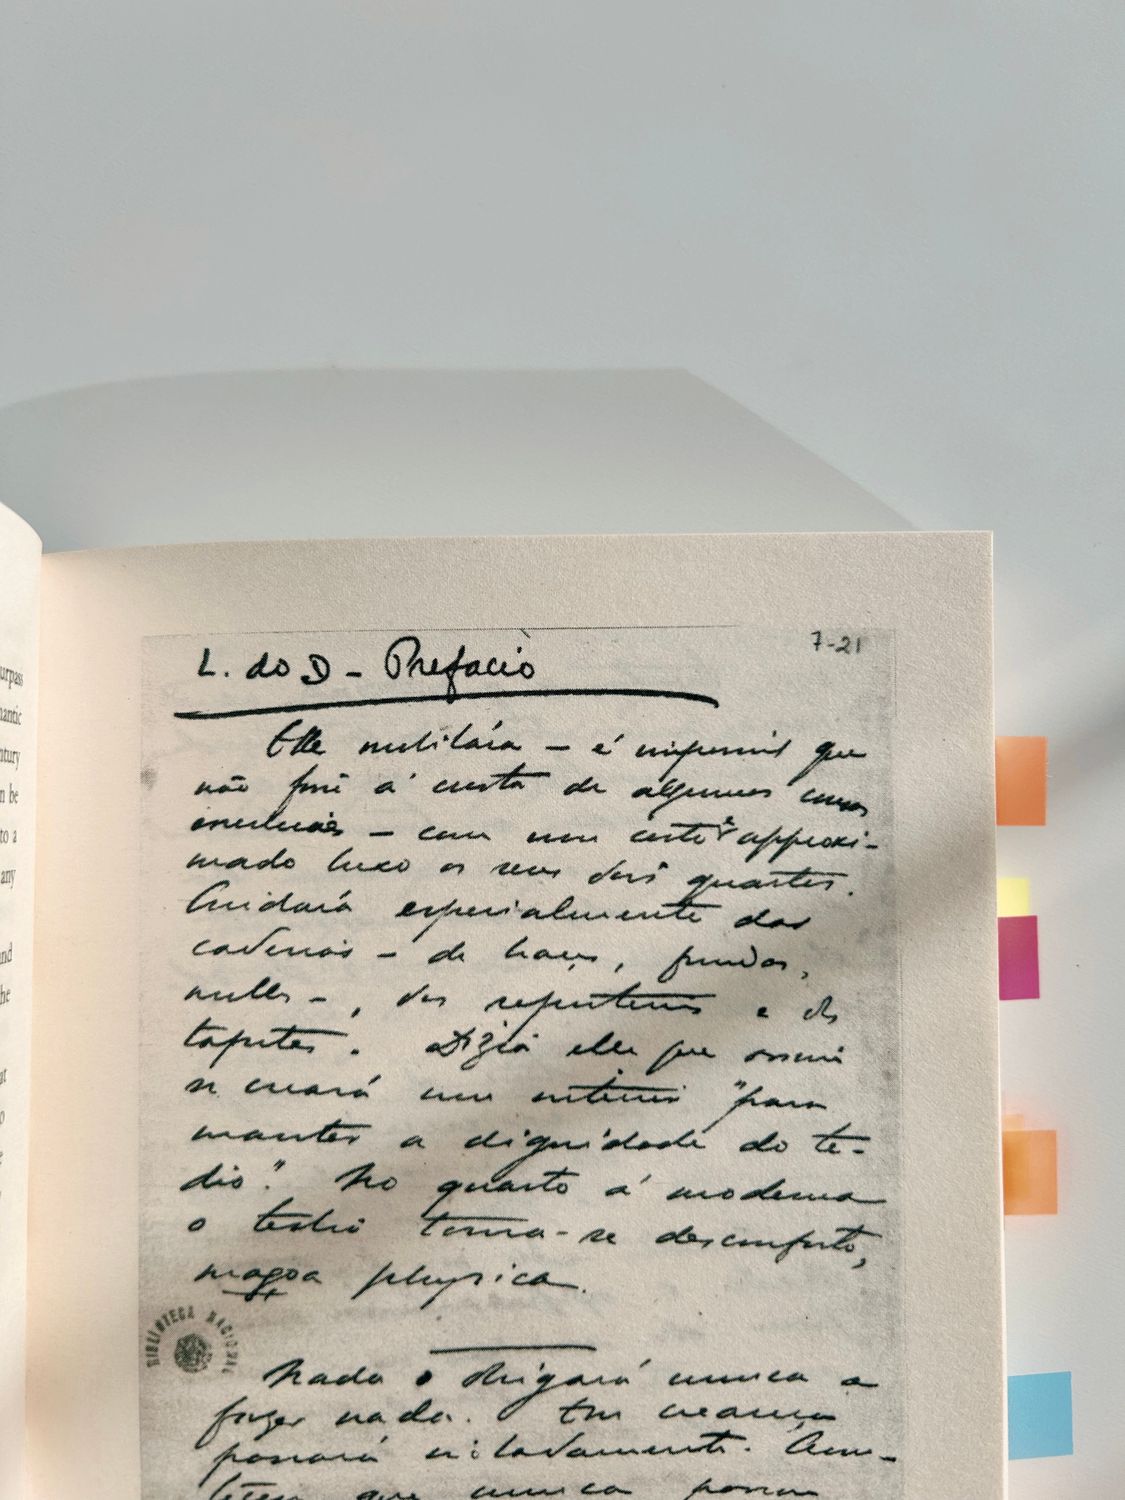 urpass
mantic
ntury
n be
to a
any
nd
he
at
L. do D – Prefacio
7-21
Elle mobilára – é impossivel que
não fosse á custa de algumas cousas
essenciaes – com um certo e approxi-
mado luxo os seus dois quartos.
Cuidara especialmente das
cadeiras – de braços, fundas,
molles –, dos reposteiros e dos
tapetes. Dizia elle que assim
se creára um interior "para
manter a dignidade do te-
dio". No quarto á moderna
o tedio torna-se desconforto,
magoa physica.
BIBLIOTECA NACIONAL
Nada o obrigara nunca a
fazer nada. Em creança
passara isoladamente. Acon-
teceu que nunca passou